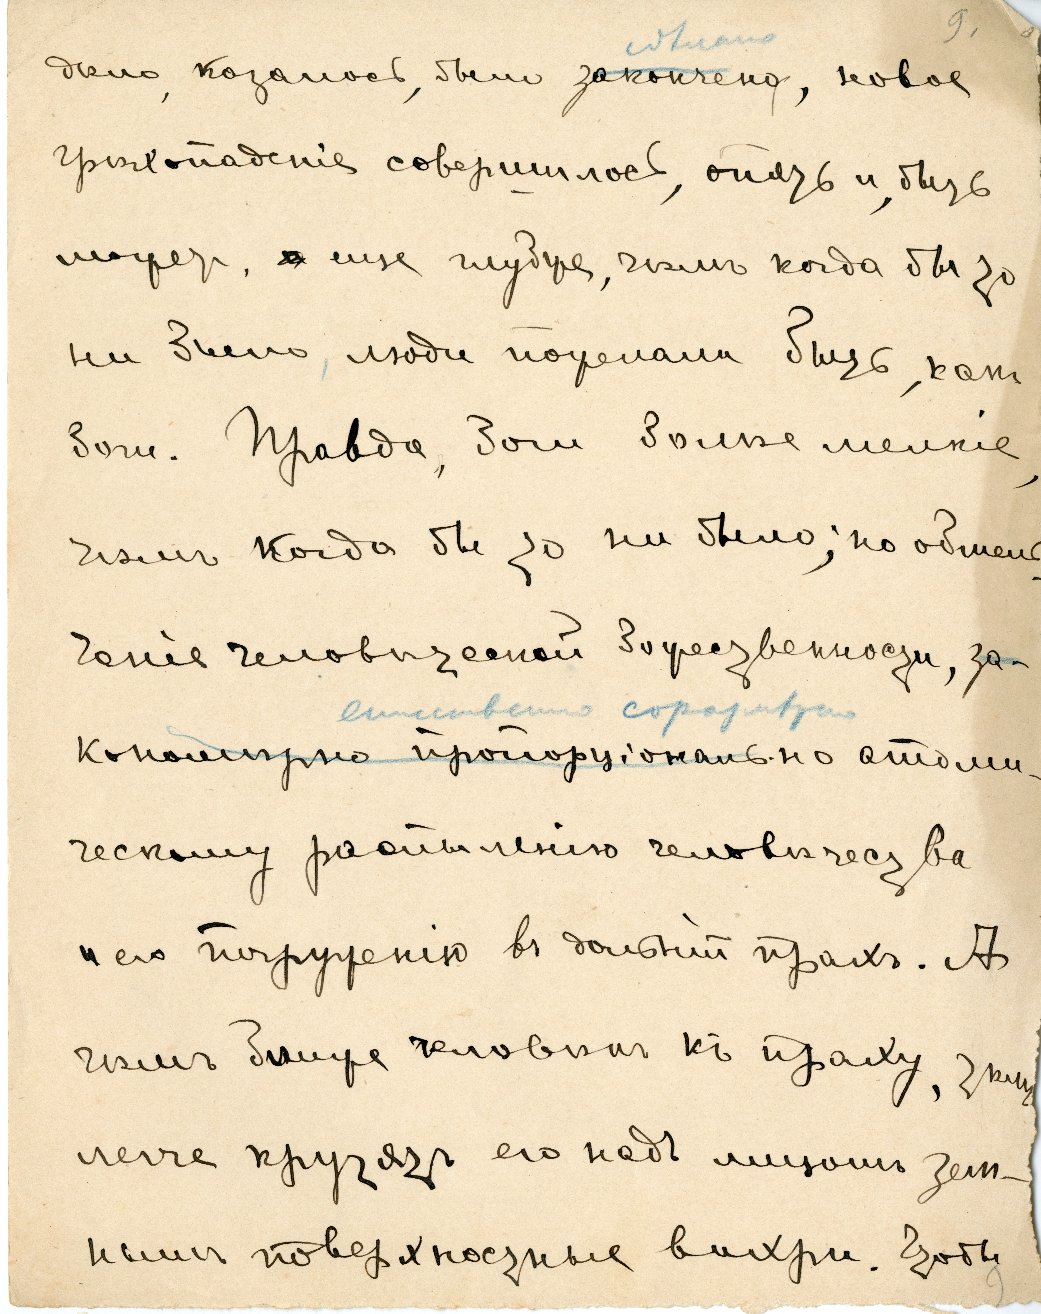 9.
сдѣлано
дѣло, казалось, было закончено, новое
грѣхопаденіе совершилось, опять и, быть
можетъ, еще глубже, чѣмъ когда бы то
ни было, люди пожелали быть, какъ
боги. Правда, боги болѣе мелкіе,
чѣмъ когда бы то ни было; но обмель-
чаніе человѣческой божественности, за-
естественно соразмѣрно
кономѣрно пропорціонально атоми-
ческому распыленію человѣчества
и его погруженію въ дольній прахъ. А
чѣмъ ближе человѣкъ къ праху, тѣмъ
легче крутятъ его надъ лицомъ зем-
нымъ поверхностные вихри. Чтобы